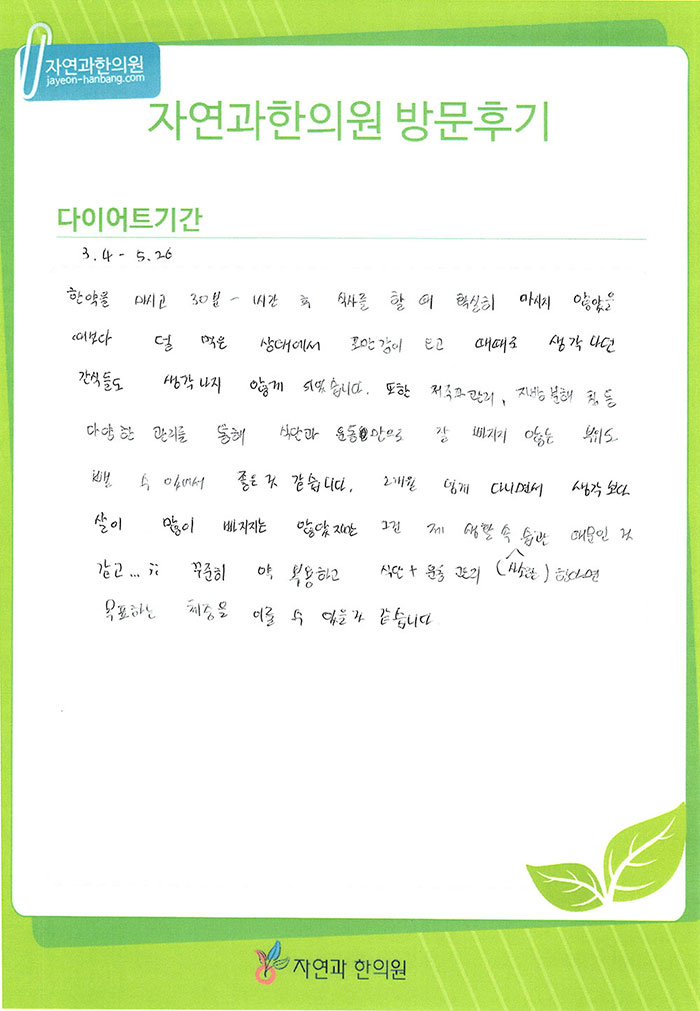 자연과한의원
jayeon-hanbang.com
자연과한의원 방문후기
다이어트기간
3.4 - 5.26
한약을 마시고 30분 ~ 1시간 후 식사를 할 때 확실히 마시지 않았을
때보다 덜 먹은 상태에서 포만감이 들고 때때로 생각나던
간식들도 생각나지 않게 되었습니다. 또한 저주파관리, 지방분해 침 등
다양한 관리를 통해 식단과 운동만으로 잘 빠지지 않는 부위도
뺄 수 있어서 좋은 것 같습니다. 2개월 넘게 다니면서 생각보다
살이 많이 빠지지는 않았지만 그건 제 생활 속 습관 때문인 것
같고... ;; 꾸준히 약 복용하고 식단 + 운동 관리 ( ) 한다면
목표하는 체중을 이룰 수 있을 것 같습니다.
자연과 한의원